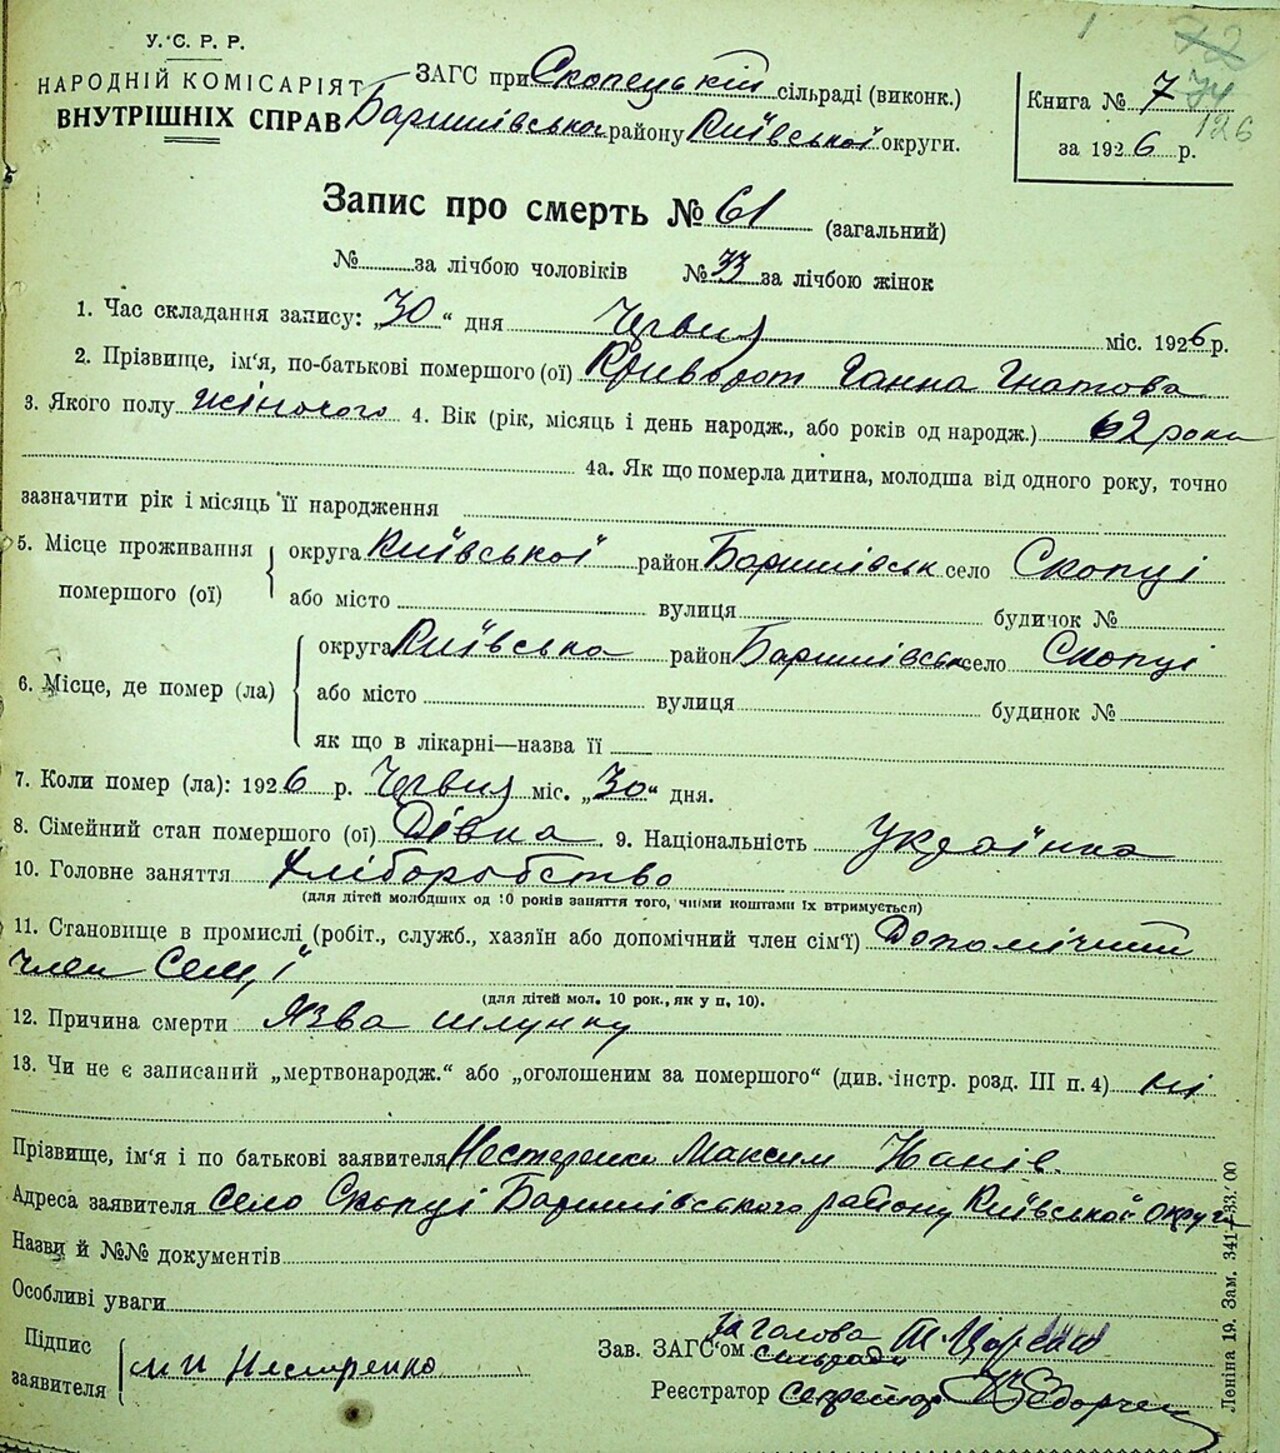 1 72
У.С.Р.Р.
НАРОДНІЙ КОМІСАРІЯТ
ВНУТРІШНІХ СПРАВ
ЗАГС при Скопецькій сільраді (виконк.)
Баришівська району Київської округи.
Книга № 7 74
126
за 1926 р.
Запис про смерть № 61 (загальний)
№ за лічбою чоловіків № 33 за лічбою жінок
1. Час складання запису: „30“ дня Червня міс. 1926 р.
2. Прізвище, ім‘я, по-батькові помершого (ої) Криворот Ганна Гнатова
3. Якого полу жіночого 4. Вік (рік, місяць і день народж., або років од народж.) 62 роки
4а. Як що померла дитина, молодша від одного року, точно
зазначити рік і місяць її народження
5. Місце проживання помершого (ої)
округа Київської район Баришівськ село Скопці
або місто вулиця будинок №
6. Місце, де помер (ла)
округа Київська район Баришівськ село Скопці
або місто вулиця будинок №
як що в лікарні—назва її
7. Коли помер (ла): 1926 р. Червня міс. „30“ дня.
8. Сімейний стан помершого (ої) Дівка. 9. Національність Українка
10. Головне заняття Хліборобство
(для дітей молодших од 10 років заняття того, чиїми коштами їх втримується)
11. Становище в промислі (робіт., служб., хазяїн або допомічний член сім‘ї) Допомічний
член семʼї
(для дітей мол. 10 рок., як у п. 10).
12. Причина смерти Язва шлунку
13. Чи не є записаний „мертвонародж.“ або „оголошеним за помершого“ (див. інстр. розд. III п. 4) ні
Прізвище, ім‘я і по батькові заявителя Нестеренко Максим Панів.
Адреса заявителя село Скопці Баришівського району Київської округи
Назви й №№ документів
Особливі уваги
Підпис заявителя М П Нестеренко
Зав. ЗАГС‘ом За голова сільради
Реєстратор секретар
Леніна 19. Зам. 341—33. 00